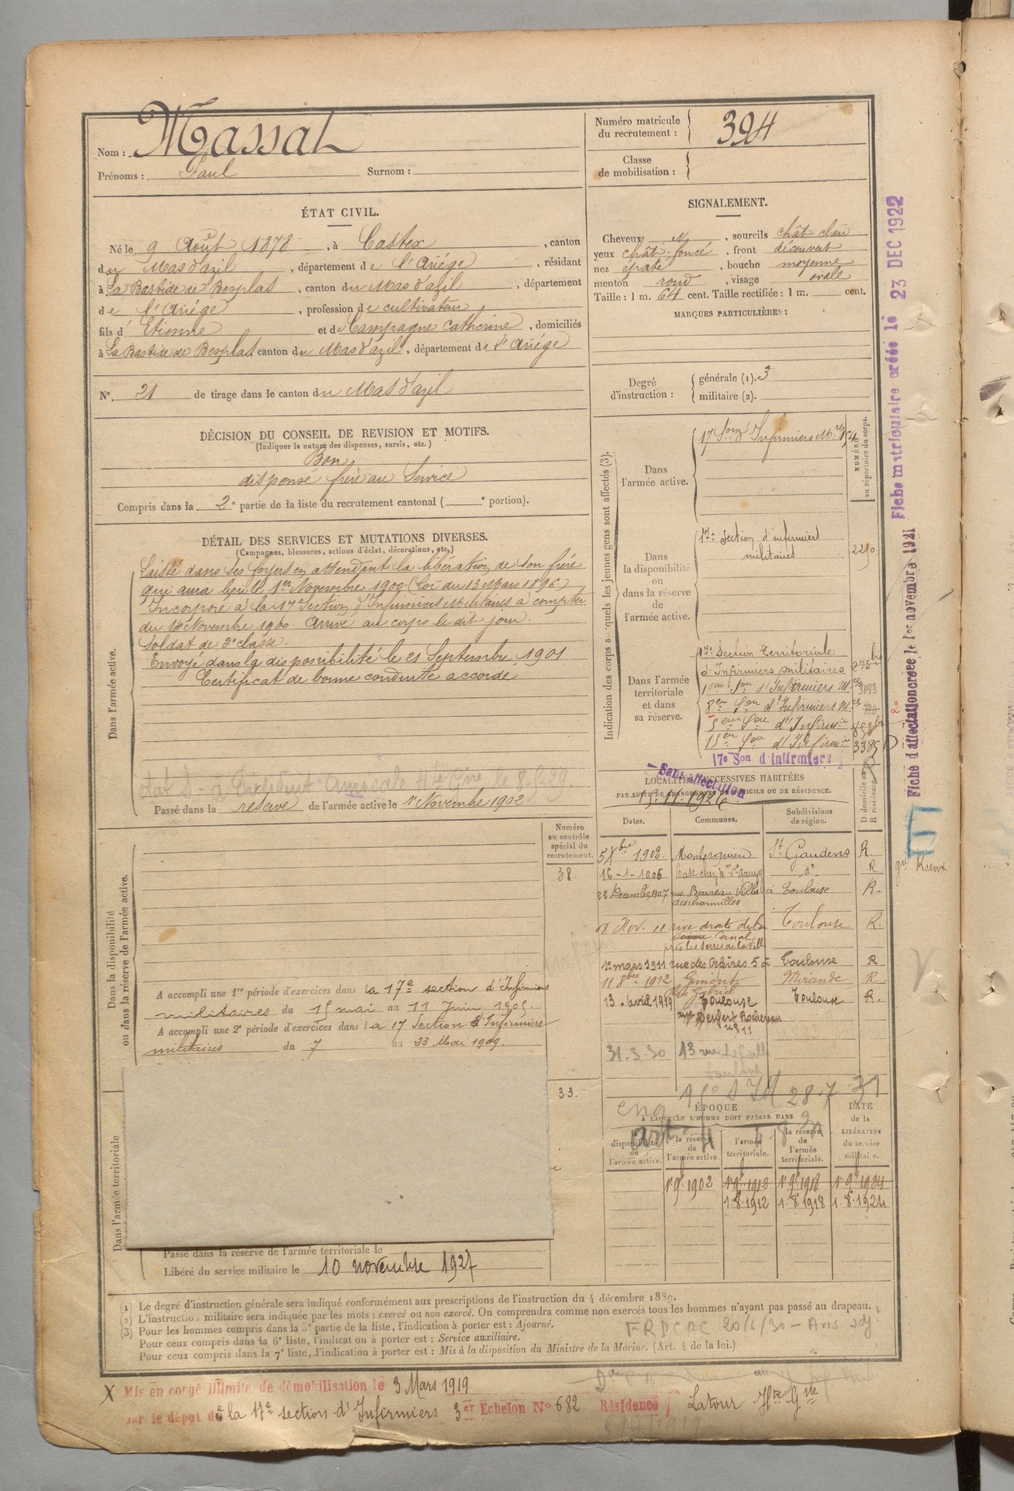 Nom : Massat
Prénoms : Paul Surnom :
Numéro matricule du recrutement : 394
Classe de mobilisation :
ÉTAT CIVIL.
Né le 9 Août 1878, à Castex, canton
du Mas d'azil, département de l'Ariége, résidant
à La Bastide de Besplas, canton du Mas d'azil, département
de l'Ariége, profession de cultivateur
fils d'Etienne et de Campagne Catherine, domiciliés
à La Bastide de Besplas canton du Mas d'azil, département de l'Ariége
N° 21 de tirage dans le canton du Mas d'azil
SIGNALEMENT.
Cheveux , sourcils chât clair
yeux chât. foncé, front découvert
nez épaté, bouche moyenne
menton rond, visage ovale
Taille : 1 m. 64 cent. Taille rectifiée : 1 m. cent.
MARQUES PARTICULIÈRES :
Degré d'instruction : générale (1). 3
militaire (2).
DÉCISION DU CONSEIL DE REVISION ET MOTIFS.
(Indiquer la nature des dispenses, sursis, etc.)
Bon
dispensé frère au Service
Compris dans la 2e partie de la liste du recrutement cantonal ( e portion).
DÉTAIL DES SERVICES ET MUTATIONS DIVERSES.
(Campagnes, blessures, actions d'éclat, décorations, etc.)
Dans l'armée active.
Laissé dans ses foyers en attendant la libération de son frère
qui aura lieu le 1er Novembre 1900 (Loi du 13 Mars 1896)
Incorporé à la 17e Section d'Infirmiers Militaires à compter
du Novembre 1900. Arrivé au corps le dit jour.
Soldat de 2e classe.
Envoyé dans la disponibilité le 21 Septembre 1901
Certificat de bonne conduite accordé
Passé dans la réserve de l'armée active le 1er Novembre 1902
Indication des corps auxquels les jeunes gens sont affectés (3).
NUMÉRO au répertoire du corps.
Dans l'armée active.
17e Son d'Infirmiers Mres
Dans la disponibilité ou dans la réserve de l'armée active.
17e Section d'infirmiers
militaires 2210
Dans l'armée territoriale et dans sa réserve.
17e Section territoriale
d'Infirmiers militaires
d'Infirmiers M. 3093
d'Infirmiers M.
d'Infirm
d'Infirm 3385
17e Son d'Infirmiers
Sans affectation
15-11-1926
LOCALITÉS SUCCESSIVES HABITÉES
PAR SUITE DE CHANGEMENT DE DOMICILE OU DE RÉSIDENCE.
Dates. Communes. Subdivisions de région. D domicile ou R résidence.
5 Xbre 1902. St Gaudens R
16-1-1906 do R
23 Décembre 1907 Toulouse R.
8 Nov. 11 rive droite de la Toulouse R.
1er mars 1911 rue des 5 à Toulouse R
11 8bre 1912 Gimont Mirande R
13 Avril 1919 Toulouse Toulouse R.
31-3-30 13 rue
Numéro au contrôle spécial du recrutement.
38.
33.
Dans la disponibilité ou dans la réserve de l'armée active.
A accompli une 1re période d'exercices dans la 17e section d'Infirmiers
militaires du 15 mai au 11 Juin 1905.
A accompli une 2e période d'exercices dans la 17 Section d'Infirmiers
militaires du 7 au 23 Mai 1909.
ÉPOQUE
A LAQUELLE L'HOMME DOIT PASSER DANS
DATE de la LIBÉRATION du service militaire.
la disponibilité de l'armée active. la réserve de l'armée active. l'armée territoriale. la réserve de l'armée territoriale.
1 9 1902 1 9 1912 1 9 1918 1 9 1924
1.8 1912 1.8 1918 1.8 1924
Dans l'armée territoriale
Passé dans la réserve de l'armée territoriale le
Libéré du service militaire le 10 novembre 1927
(1) Le degré d'instruction générale sera indiqué conformément aux prescriptions de l'instruction du 4 décembre 1889.
(2) L'instruction militaire sera indiquée par les mots : exercé ou non exercé. On comprendra comme non exercés tous les hommes n'ayant pas passé au drapeau.
(3) Pour les hommes compris dans la 5e partie de la liste, l'indication à porter est : Ajourné.
Pour ceux compris dans la 6e liste, l'indication à porter est : Service auxiliaire.
Pour ceux compris dans la 7e liste, l'indication à porter est : Mis à la disposition du Ministre de la Marine. (Art. 4 de la loi.)
X Mis en congé illimité de démobilisation le 3 Mars 1919
par le dépôt de la 17e section d'Infirmiers 3er Echelon No 682 Résidence Latour Hte Gne
Fiche matriculaire créée le 23 DEC 1922
Fiche d'affectation créée le 1er novembre 1921